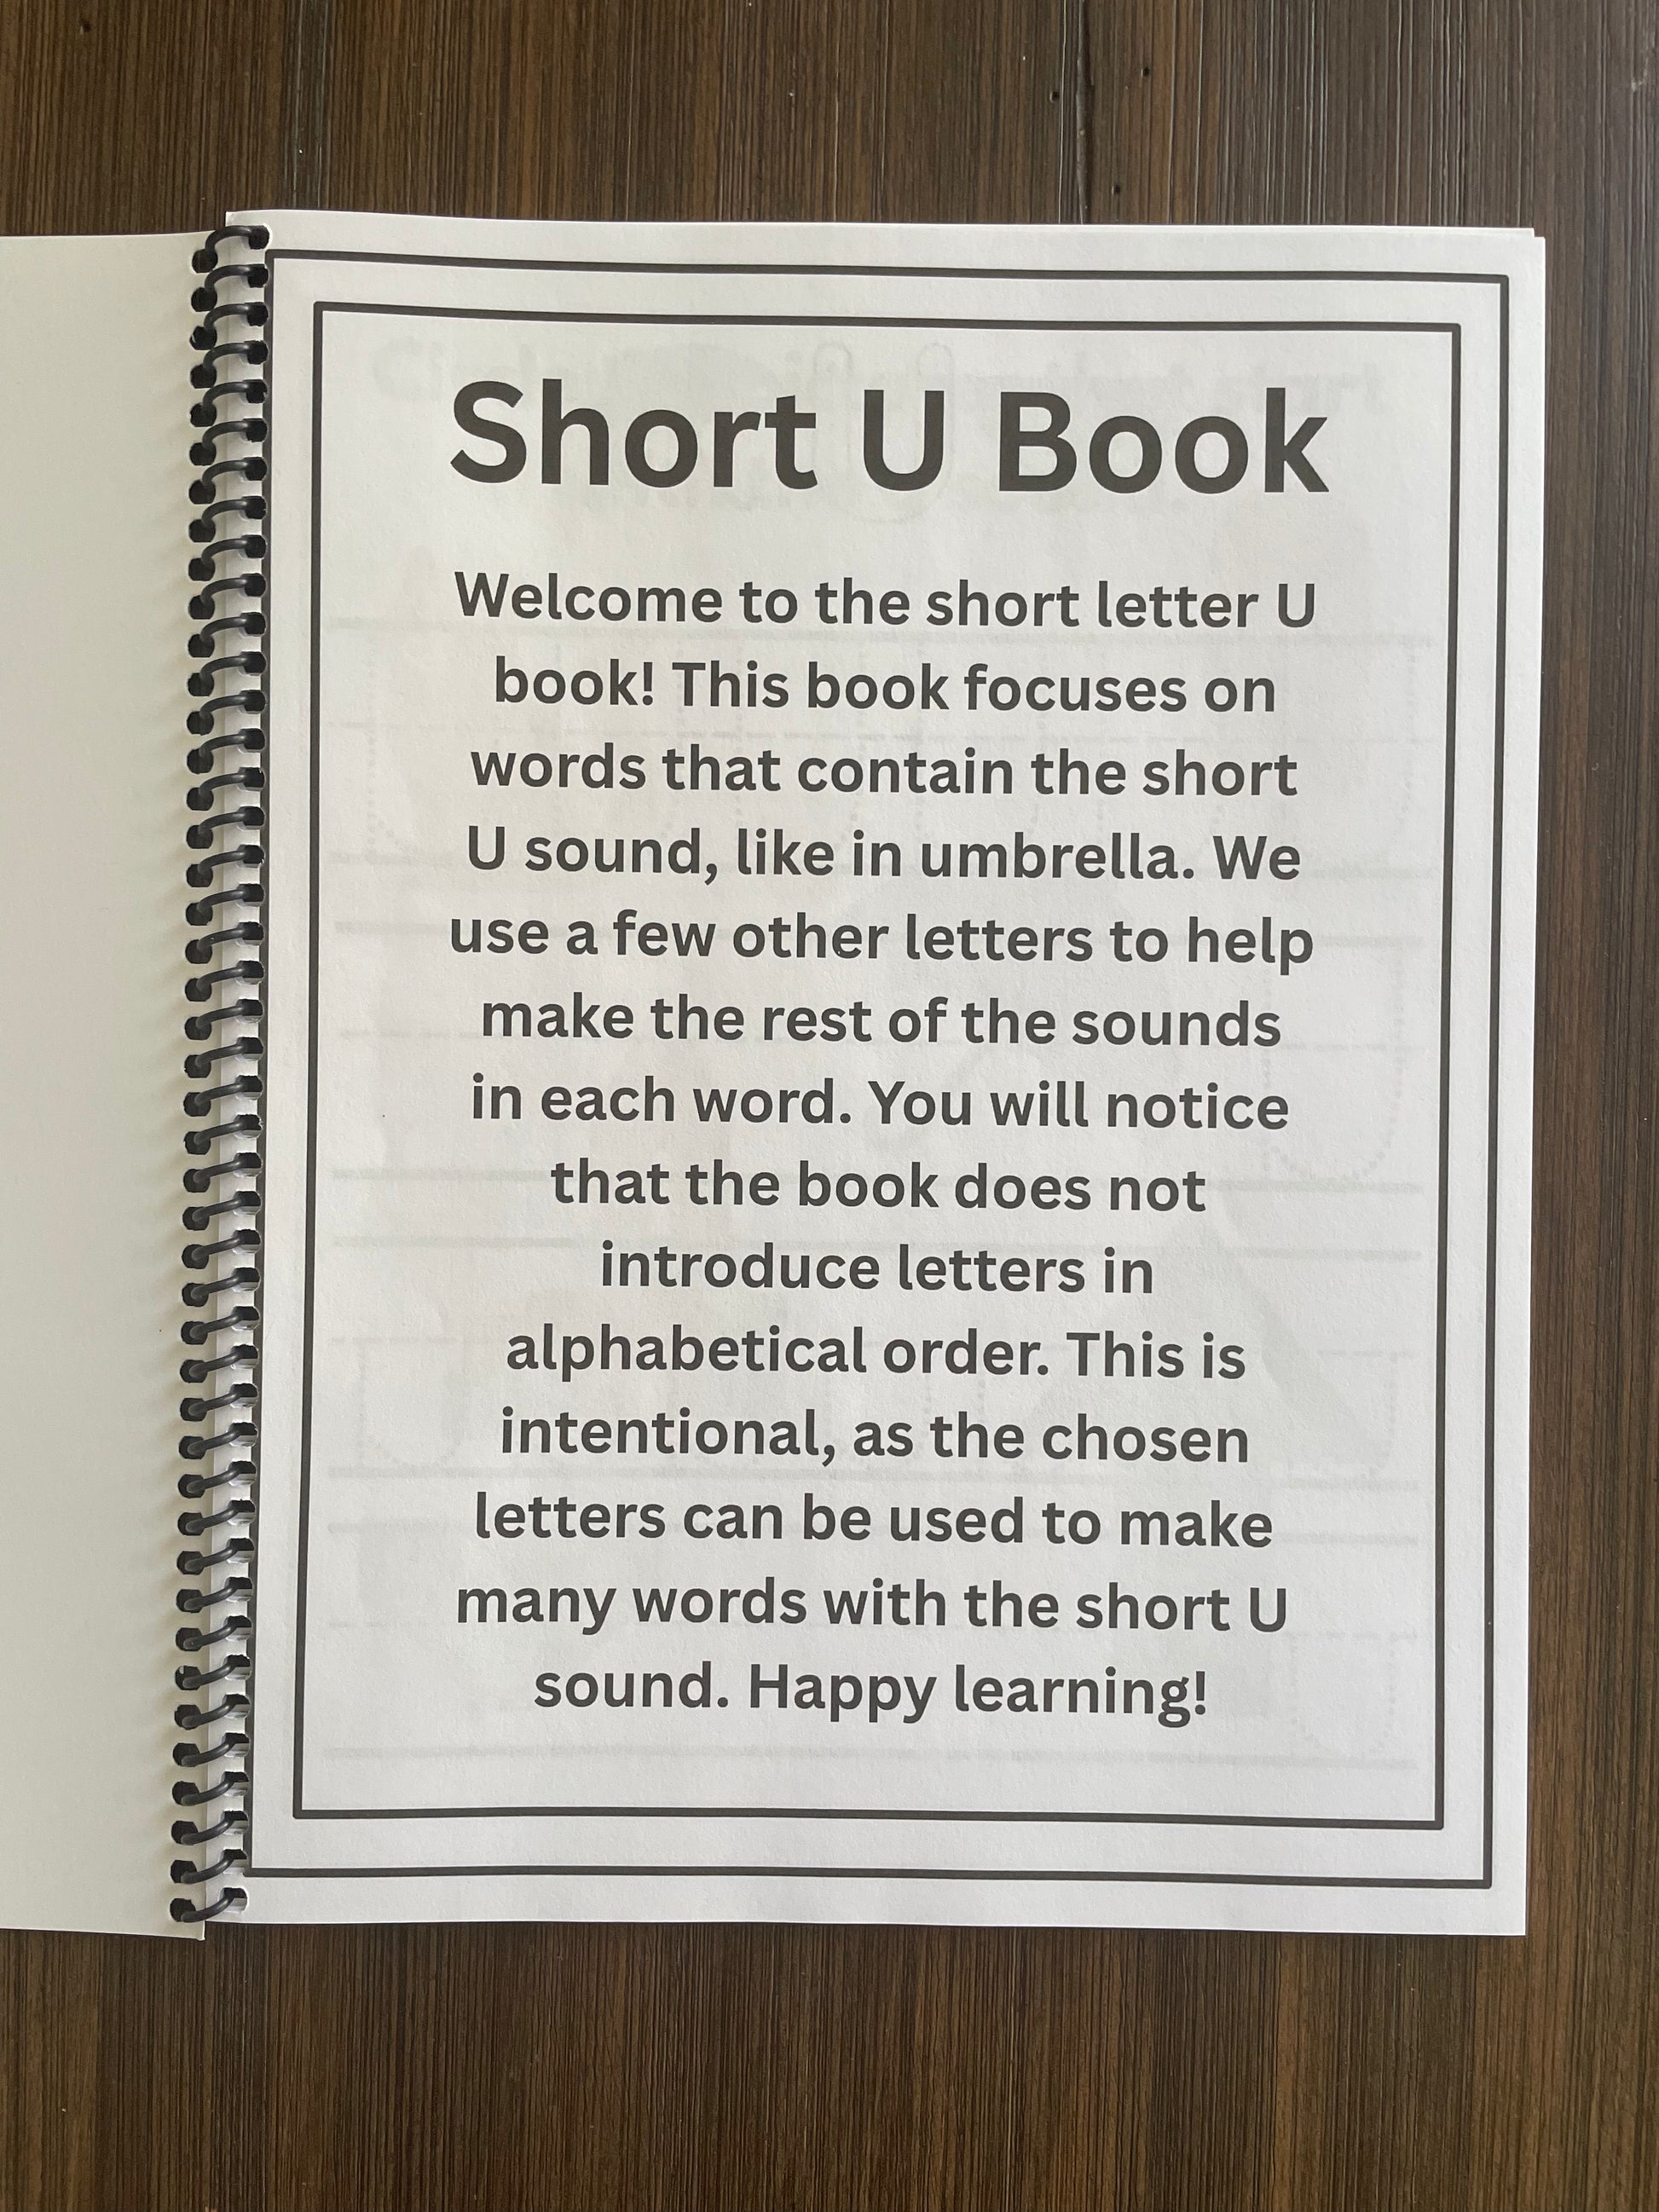 Short U Book
Welcome to the short letter U
book! This book focuses on
words that contain the short
U sound, like in umbrella. We
use a few other letters to help
make the rest of the sounds
in each word. You will notice
that the book does not
introduce letters in
alphabetical order. This is
intentional, as the chosen
letters can be used to make
many words with the short U
sound. Happy learning!